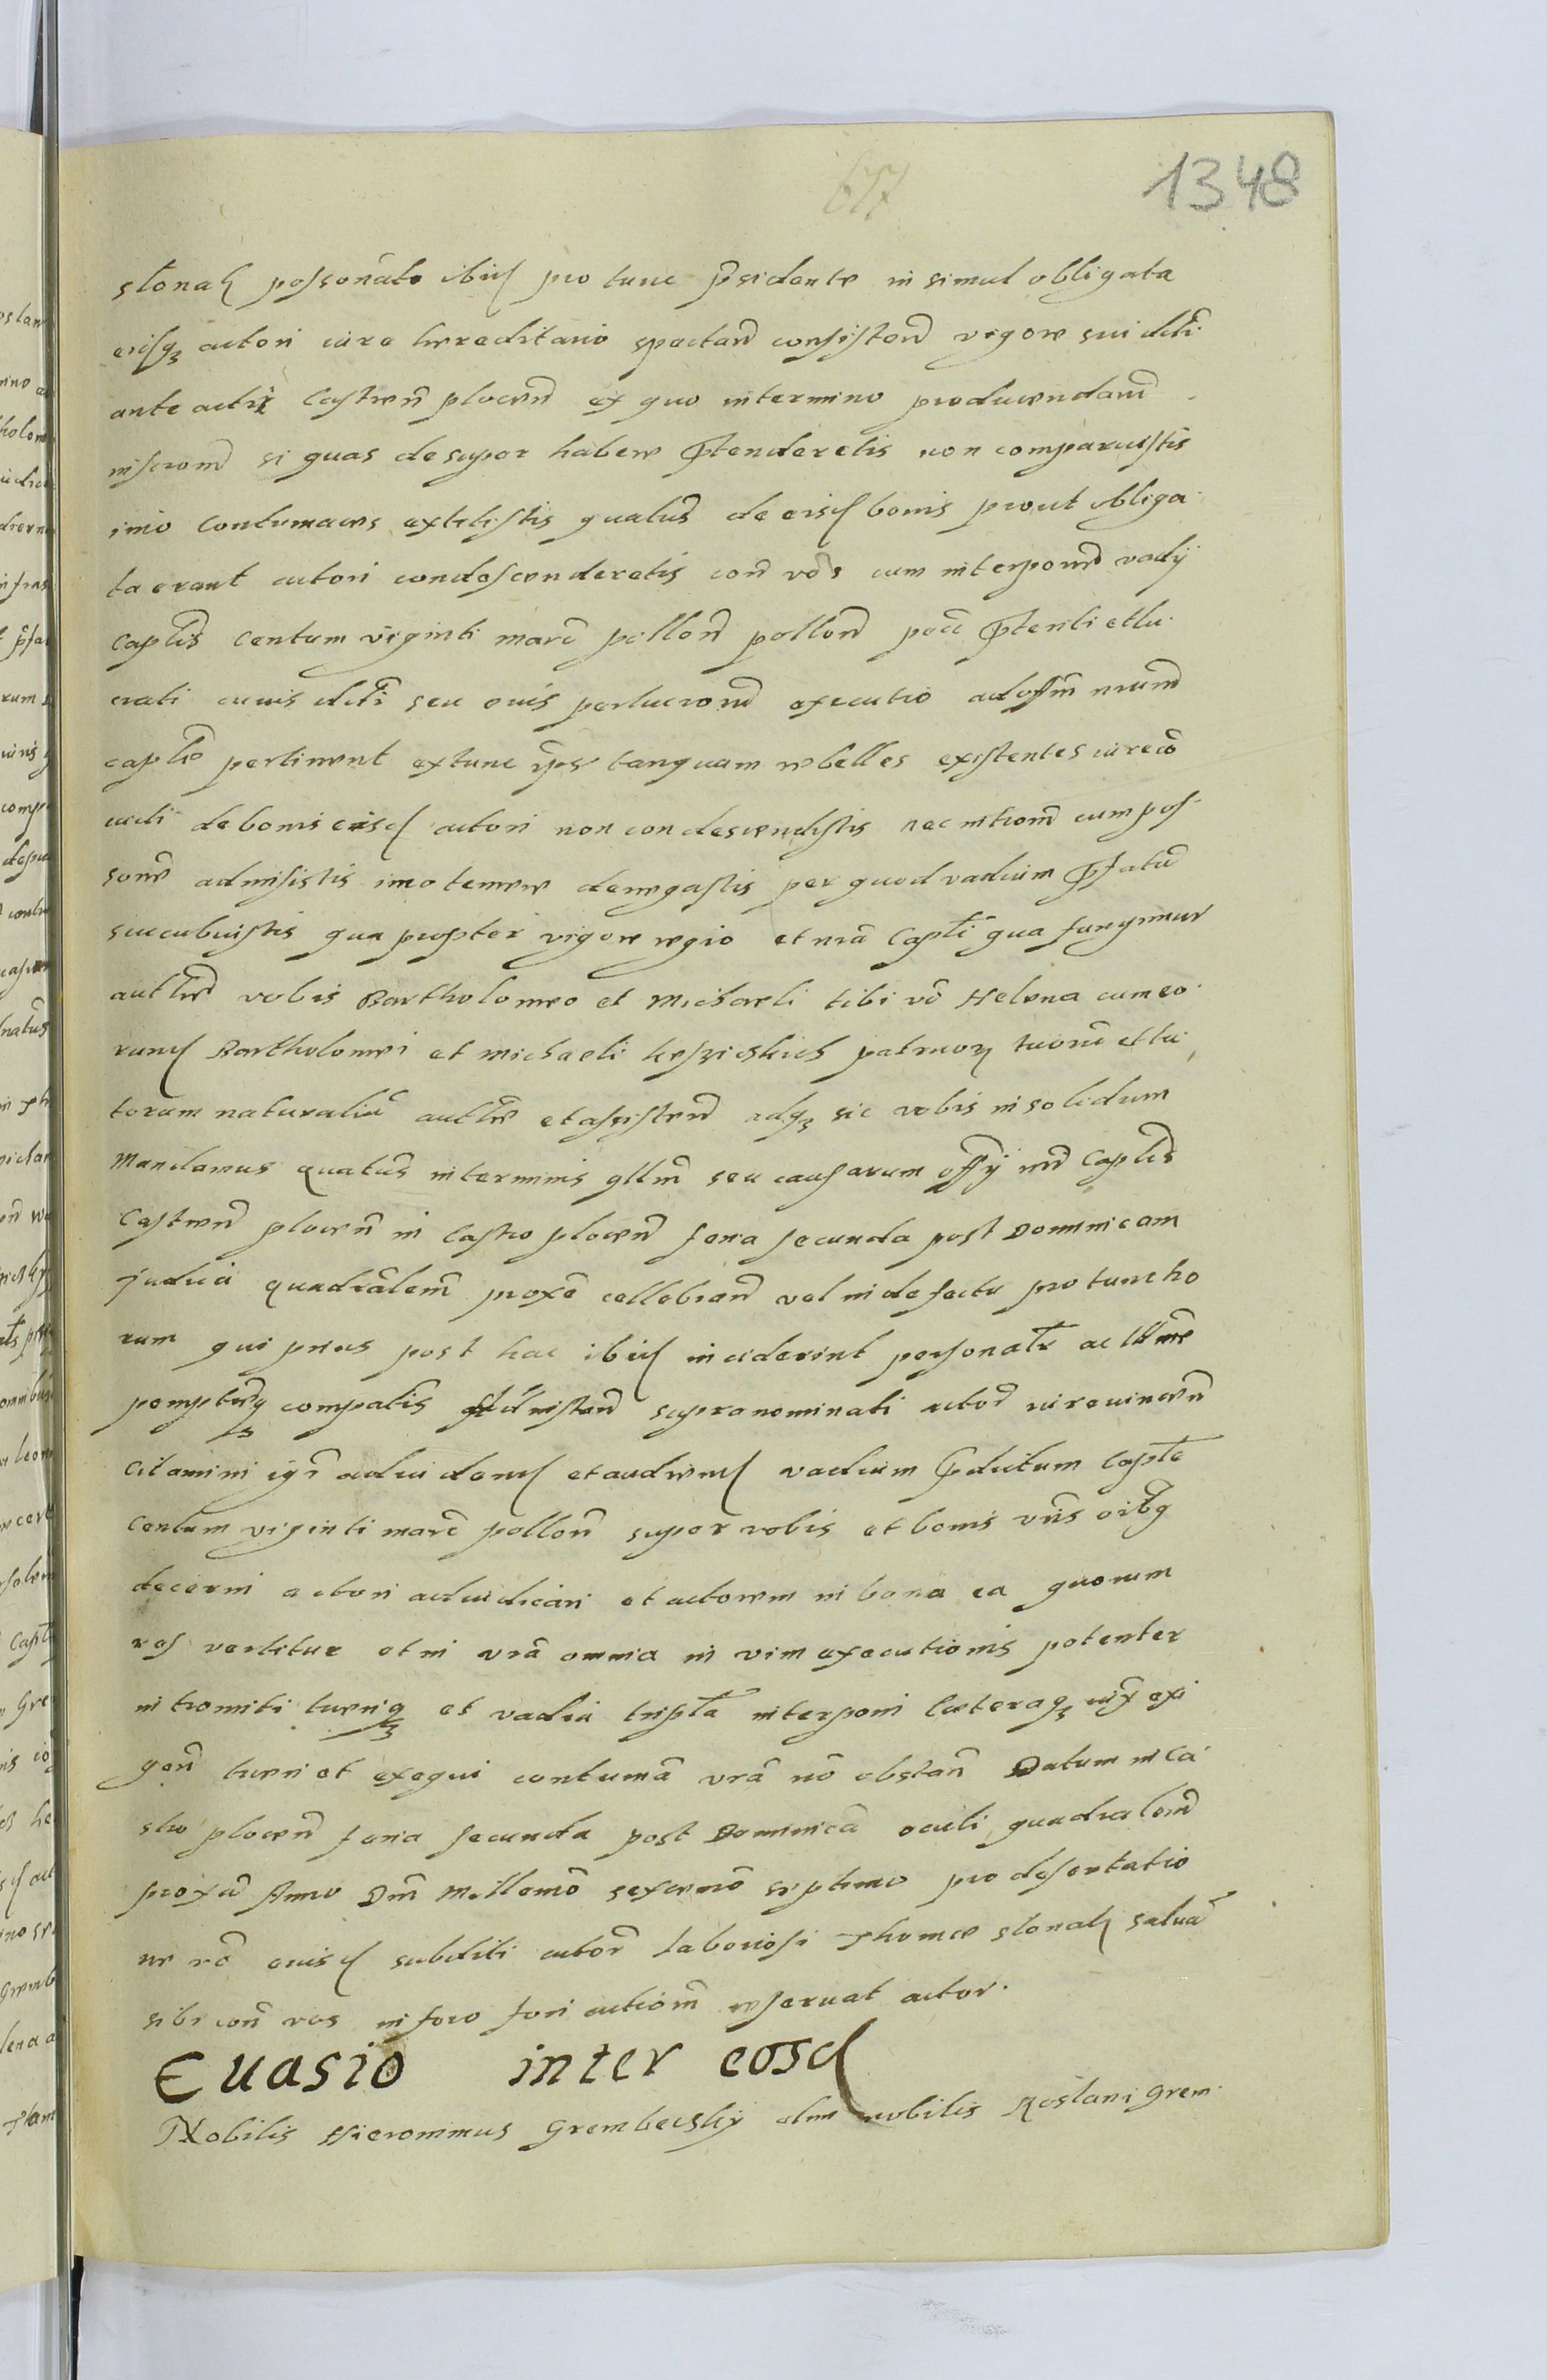 677
1348
stonak possonato ibid pro tunc psidente in simul obligata
eisq3 actori iure hereditario spectan consisten vigore sui deti
ante acta Castren plocen ex quo in termino producendarum
inscrom si quas desuper habere ptenderetis non comparuistis
imo contumaces extitistis quatus de eisd bonis prout obliga
ta erant actori condescenderetis con vos cum interpone vadij
captis centum viginti marc pollon pollon pene ptenti et lu
crati cuius deti seu eius perlucrom executio ad offm nrum
captle pertinent ex tunc ipse tanquam rebelles existentes iure co
acti de bonis eisd actori non condescendistis nec introm cum pos
sone admisistis imo temere denegastis per quod vadium pfatu
succubuistis qua propter vigore regio et nra Capti qua fungimur
autte vobis Bartholomeo et Michaeli tibi vo Helena cum eo
rund Bartholomei et Michaeli patruor tuorum et tu
torum naturaliu autte et assisten adq3 sic vobis in solidum
Mandamus quatus in terminis gllm seu causarum offij nri Captis
Castren plocen in Castro plocen feria secunda post Dominicam
Judica quadralem proxe cellebran vel in defectu pro tunc ho
rum qui prius post hac ibid inciderint personatr ac
perempterq3 compatis supranominati actor
Citamini igr adviden et audien vadium pdictum Captle
centum viginti marc pollon super vobis et bonis vris oibq
decerni actori adiudicari et actorem in bona ea quorum
res vertitur et in vra omnia in vim executionis potenter
intromitti tueriq3 et vadia tripla interponi caeteraq3 iurx exi
gen tueri et exequi contuma vra no obstan Datum in Ca
stro plocen feria secunda post Dominica oculi quadralem
proxa Anno Dni Millemo sexcemo septimo pro desertatio
ne vo eiusd subditi actor laboriosi Thomae stonak salva
sibi con vos in foro fori actiom reservat actor.
Evasio inter eosd
Nobilis Hieronimus Grembecskij olim nobilis Roslani Grem